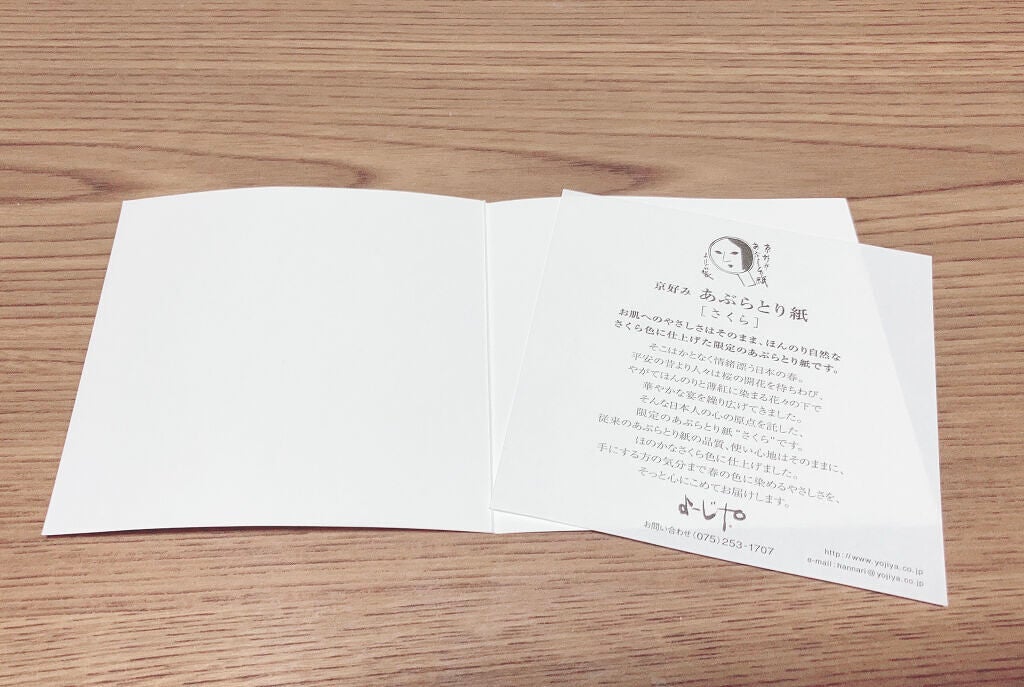 京好み
あぶらとり紙
よーじや
京好み あぶらとり紙
[さくら]
お肌へのやさしさはそのまま、ほんのり自然な
さくら色に仕上げた限定のあぶらとり紙です。
そこはかとなく情緒漂う日本の春。
平安の昔より人々は桜の開花を待ちわび、
やがてほんのりと薄紅に染まる花々の下で
華やかな宴を繰り広げてきました。
そんな日本人の心の原点を託した、
限定のあぶらとり紙“さくら”です。
従来のあぶらとり紙の品質、使い心地はそのままに、
ほのかなさくら色に仕上げました。
手にする方の気分まで春の色に染めるやさしさを、
そっと心にこめてお届けします。
よーじや
お問い合わせ(075)253-1707
http://www.yojiya.co.jp
e-mail:hannari@yojiya.co.jp